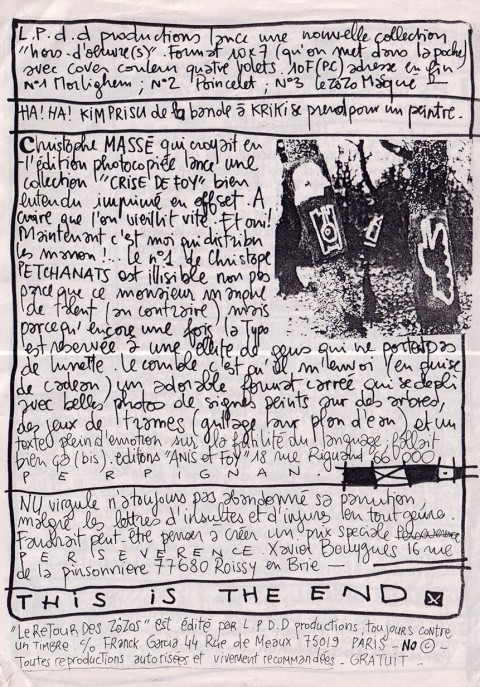 L.P.d.d productions lance une nouvelle collection
"hors-d'oeuvre(s)". Format 10x7 (qu'on met dans la poche)
avec cover couleur quatre volets. 10F (PC) adresse en fin
N°1 Morbighem ; N°2 Poincelet ; N°3 le zozo Masqué
HA! HA! KIM PRISU de la bande à KRIKI se prend pour un peintre.
Christophe MASSÉ qui croyait en
l'édition photocopiée lance une
collection "CRISE DE FOY" bien
entendu imprimé en offset. A
croire que l'on vieillit vite. Et oui!
Maintenant c'est moi qui distribu
les marron!... Le n°1 de Christophe
PETCHANATS est illisible non pas
parce que ce monsieur manque
de talent (au contraire) mais
parce qu'encore une fois la Typo
est réservée à une élite de gens qui ne portent pas
de lunette. Le comble c'est qu'il m'envoi (en guise
de cadeau) un adorable format carrée qui se depli
avec belles photos de signes peints sur des arbres,
des jeux de trames (grillage sur plan d'eau) et un
texte plein d'émotion sur la futilité du language, fallait
bien ça (bis). editions "Anis et Foy" 18 rue Rigaud 66 000
P E R P I G N A N.
NU virgule n'a toujours pas abandonné sa parution
malgré les lettres d'insultes et d'injures en tout genre.
Faudrait peut-être penser à créer un prix spéciale
P E R S E V E R E N C E. Xaviot Bouygues 16 rue
de la pinsonnière 77680 Roissy en Brie —
THIS IS THE END
"Le ReTouR Des ZôZos" est édité par L.P.D.D productions, toujours contre
un TIMBRE c/o Franck Garcia 44 Rue de Meaux 75019 PARIS - No © -
Toutes reproductions autorisées et vivement recommandées - GRATUIT -